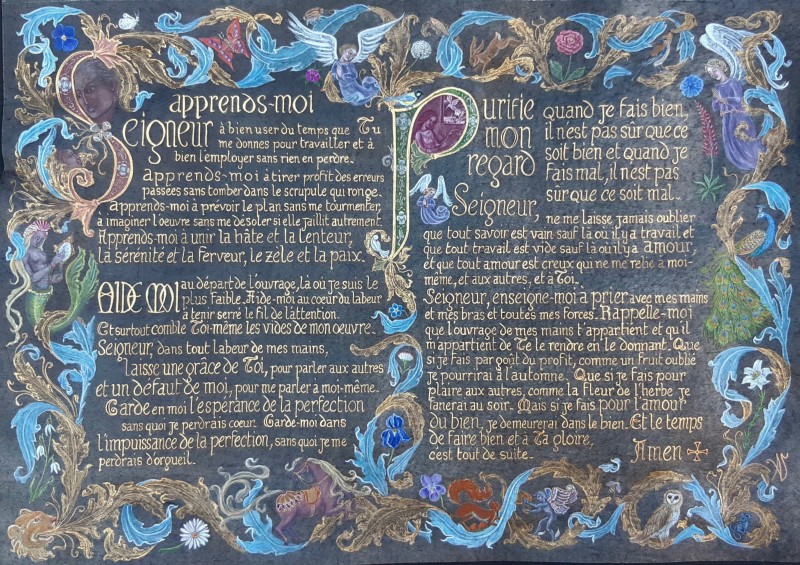 apprends-moi
Seigneur à bien user du temps que Tu
me donnes pour travailler et à
bien l'employer sans rien en perdre.
apprends-moi à tirer profit des erreurs
passées sans tomber dans le scrupule qui ronge.
apprends-moi à prévoir le plan sans me tourmenter,
à imaginer l'oeuvre sans me désoler si elle jaillit autrement.
Apprends-moi à unir la hâte et la lenteur,
la sérénité et la ferveur, le zèle et la paix.
AIDE MOI au départ de l'ouvrage, là où je suis le
plus faible. Aide-moi au coeur du labeur
à tenir serré le fil de l'attention.
Et surtout comble Toi-même les vides de mon oeuvre.
Seigneur, dans tout labeur de mes mains,
laisse une grâce de Toi, pour parler aux autres
et un défaut de moi, pour me parler à moi-même.
Garde en moi l'espérance de la perfection
sans quoi je perdrais coeur. Garde-moi dans
l'impuissance de la perfection, sans quoi je me
perdrais d'orgueil.
Purifie
mon
regard
quand je fais bien,
il n'est pas sûr que ce
soit bien et quand je
fais mal, il n'est pas
sûr que ce soit mal.
Seigneur, ne me laisse jamais oublier
que tout savoir est vain sauf là où il y a travail et
que tout travail est vide sauf là où il y a amour,
et que tout amour est creux qui ne me relie à moi-
même, et aux autres, et à Toi.
Seigneur, enseigne-moi à prier avec mes mains
et mes bras et toutes mes forces. Rappelle-moi
que l'ouvrage de mes mains t'appartient et qu'il
m'appartient de Te le rendre en le donnant. Que
si je fais par goût du profit, comme un fruit oublié
je pourrirai à l'automne. Que si je fais pour
plaire aux autres, comme la fleur de l'herbe je
fanerai au soir. Mais si je fais pour l'amour
du bien, je demeurerai dans le bien. Et le temps
de faire bien et à Ta gloire,
c'est tout de suite.
Amen